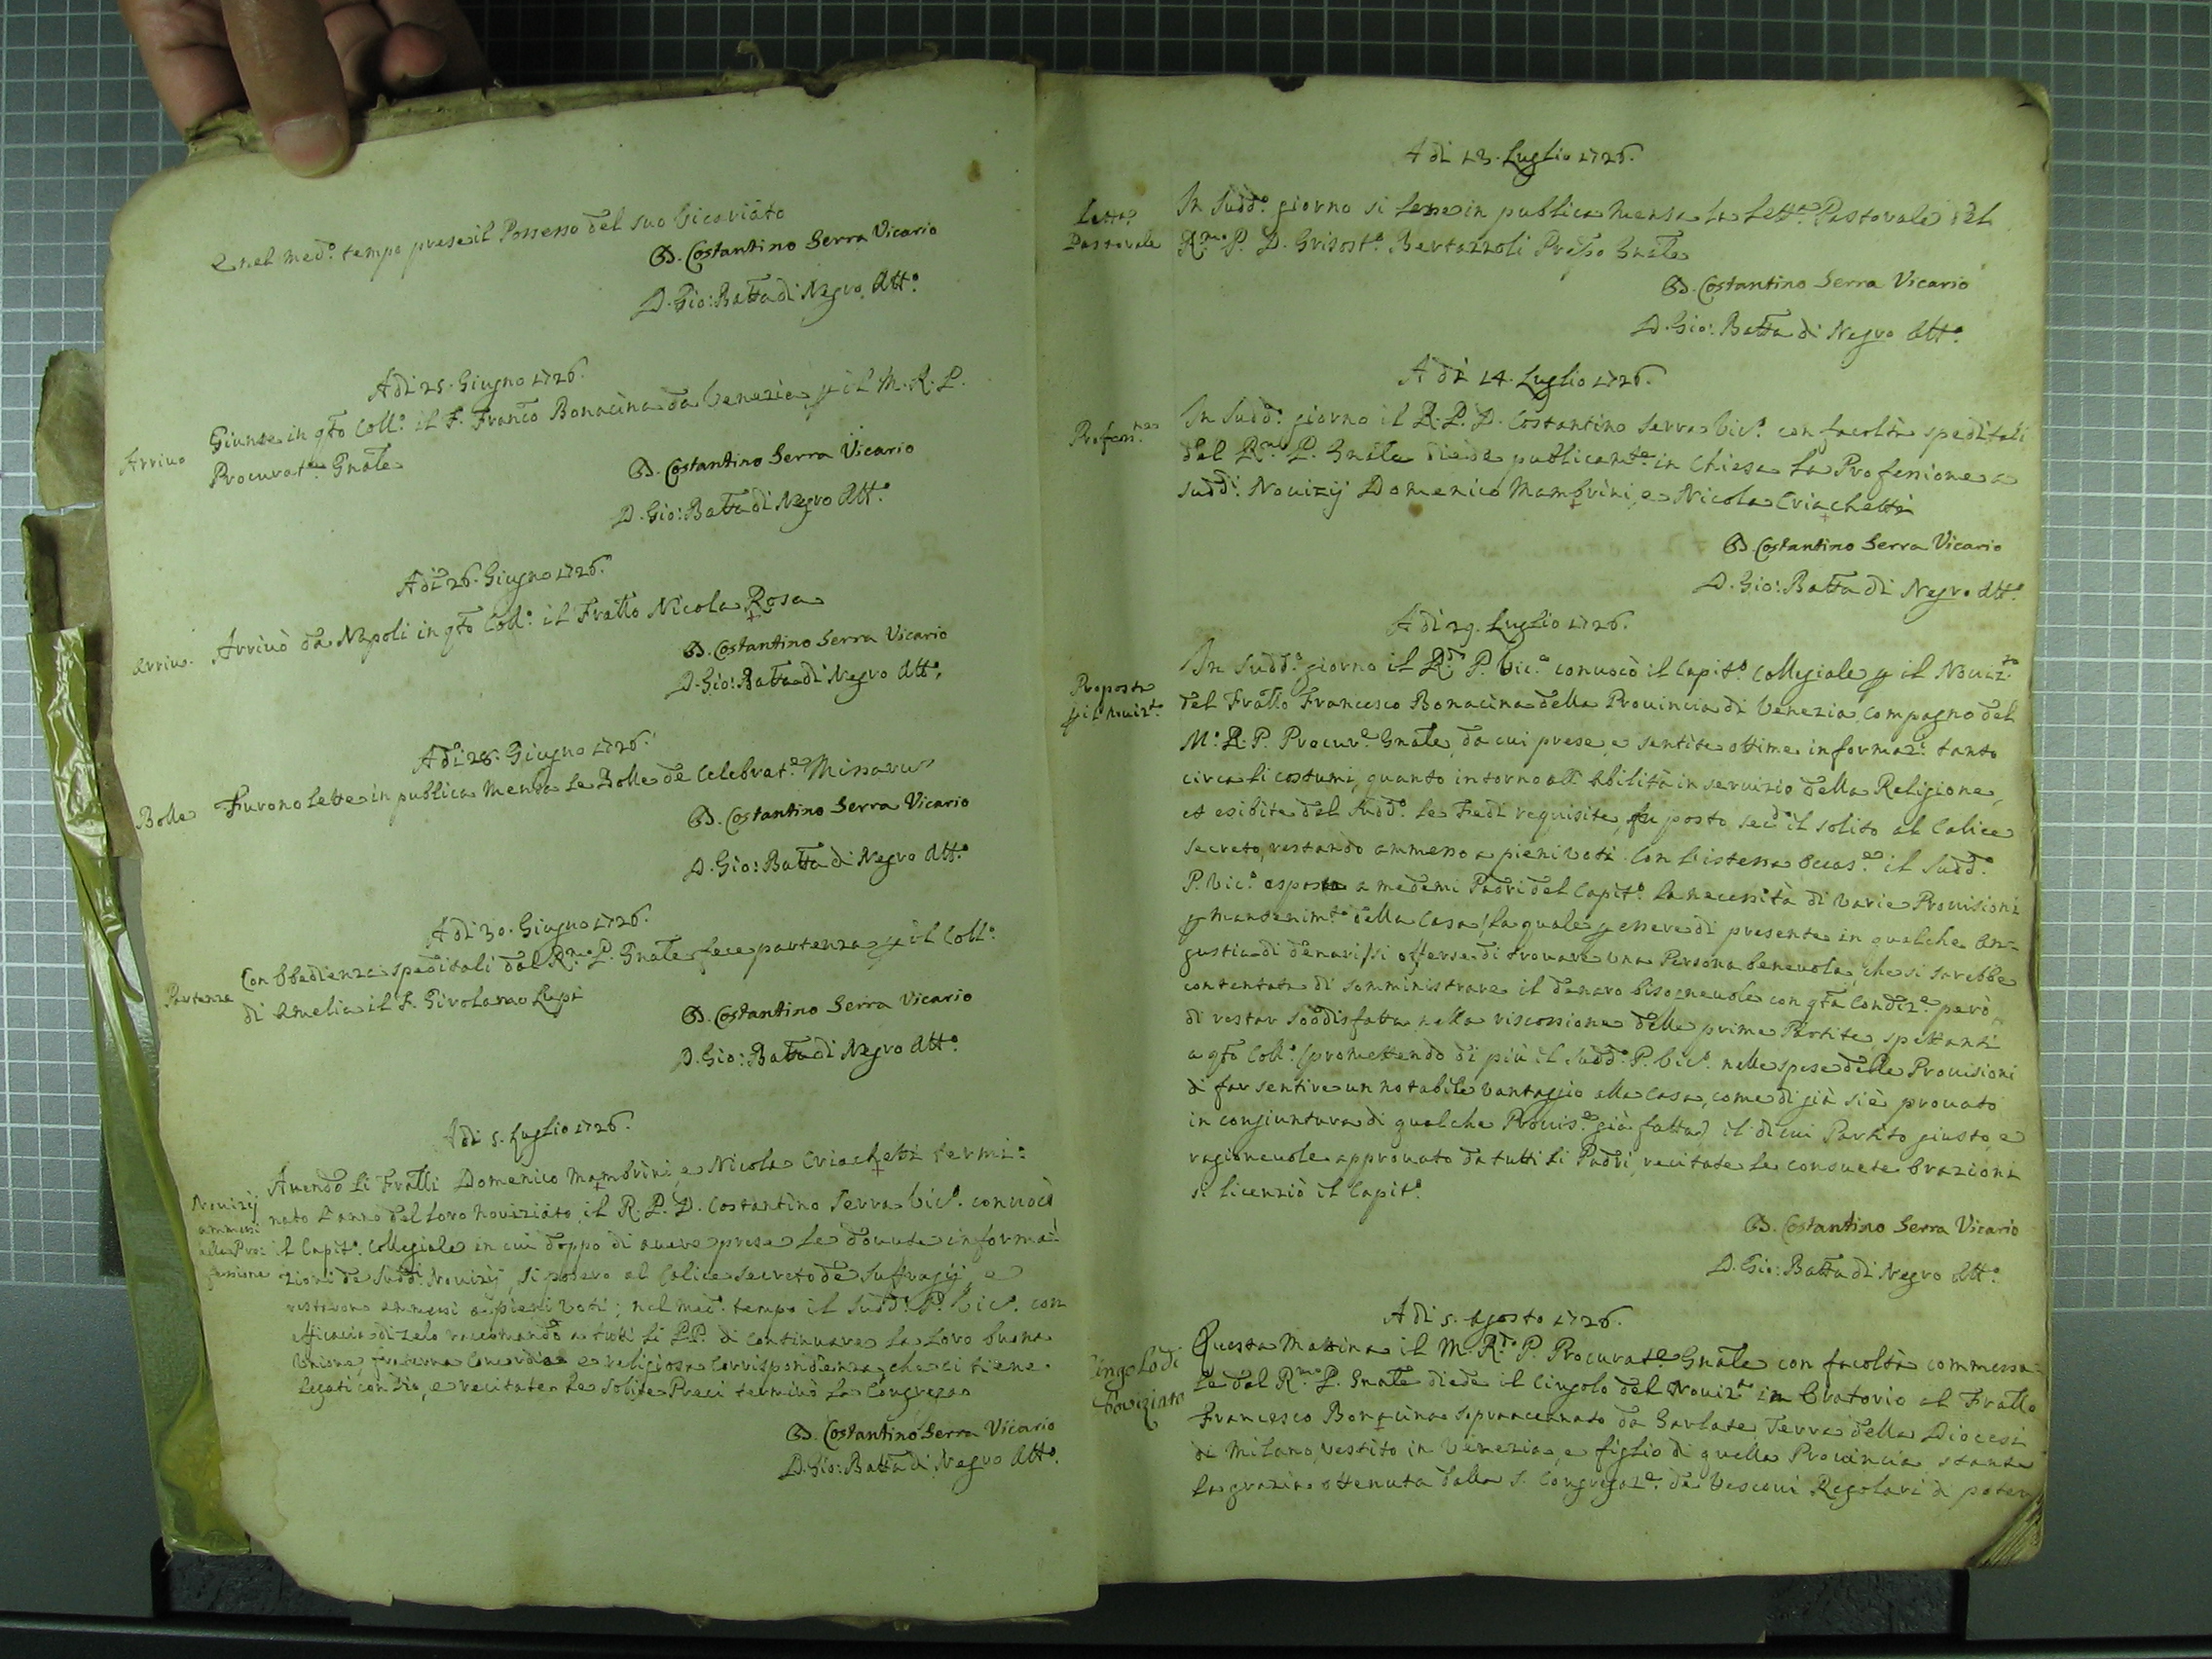 e nel med.o tempo prese il Possesso del suo Vicariato
D. Costantino Serra Vicario
D. Gio: Batta di Negro Att.o
A di 25. Giugno 1726.
Arrivo
Giunse in qto Coll.o il F. Franco Bonacina da Venezia p il M. R. P.
Procurat.e Gnale
D. Costantino Serra Vicario
D. Gio: Batta di Negro Att.o
A di 26. Giugno 1726.
Arrivo.
Arrivò da Napoli in qto Coll.o il Fratlo Nicola Rosa
D. Costantino Serra Vicario
D. Gio: Batta di Negro Att.o
A di 28. Giugno 1726.
Bolle
Furono lette in publica Mensa le Bolle de Celebrat.e Missarum
D. Costantino Serra Vicario
D. Gio: Batta di Negro Att.o
A di 30. Giugno 1726.
Partenza
Con Obedienza speditali dal R.mo P. Gnale fece partenza p il Coll.o
di Amelia il F. Girolamo Lupi
D. Costantino Serra Vicario
D. Gio: Batta di Negro Att.o
A di 5. Luglio 1726.
Novizij
ammessi
alla Pro:
fessione
Avendo li Fratlli Domenico Mambrini, e Nicola Criachetti termi:
nato l'anno del loro noviziato, il R. P. D. Costantino Serra Vic.o convocò
il Capit.o Collegiale in cui doppo di avere prese le dovute informa:
zioni de Sudd.i Novizij, si posero al Calice secreto de Suffragij, e
restarono ammessi a pieni voti; nel med.o tempo il Sudd.o P. Vic.o con
efficacia di zelo raccomandò a tutti li PP. di continuare la loro buona
Unione, fraterna Concordia e religiosa Corrispondenza, che ci tiene
legati con Dio, e recitate le solite Preci terminò la Congreg.e
D. Costantino Serra Vicario
D. Gio: Batta di Negro Att.o
A di 13. Luglio 1726.
Letta
Pastorale
In Sudd.o giorno si lesse in publica Mensa la Lett.a Pastorale del
R.mo P. D. Grisost.o Bertazzoli Prepo Gnale
D. Costantino Serra Vicario
D. Gio: Batta di Negro Att.o
A di 14. Luglio 1726.
Profess.ne
In Sudd.o giorno il R. P. D. Costantino Serra Vic.o con facoltà speditali
dal R.mo P. Gnale diede publicam.te in Chiesa la Professione a
sudd.i Novizij Domenico Mambrini, e Nicola Criachetti
D. Costantino Serra Vicario
D. Gio: Batta di Negro Att.o
A di 29. Luglio 1726.
Proposta
p il Noviz.to
In Sudd.o giorno il R.do P. Vic.o convocò il Capit.o Collegiale p il Noviz.to
del Fratlo Francesco Bonacina della Provincia di Venezia, compagno del
M.o R. P. Procur.e Gnale, da cui prese, e sentite ottime informaz.i tanto
circa li costumi, quanto intorno all' Abilità in servizio della Religione,
et esibite dal Sudd.o le Fedi requisite, fu posto sec.do il solito al Calice
secreto, restando ammesso a pieni voti. Con l'istessa occas.e il Sudd.o
P. Vic.o espose a medemi Padri del Capit.o la necessità di varie Provisioni
p mantenim.to della Casa, (la quale p essere di presente in qualche an=
gustia di denari) si offerse di trovare una Persona benevola, che si sarebbe
contentata di somministrare il denaro bisognevole con qta Condiz.e però
di restar soddisfatta nella riscossione delle prime Partite spettanti
a qto Coll.o (promettendo di più il Sudd.o P. Vic.o nelle spese delle Provisioni
di far sentire un notabile vantaggio alla Casa, come di già si è provato
in congiuntura di qualche Provis.e già fatta) il di cui Partito giusto, e
ragionevole approvato da tutti li Padri, recitate le consuete Orazioni
si licenziò il Capit.o
D. Costantino Serra Vicario
D. Gio: Batta di Negro Att.o
A di 5. Agosto 1726.
Cingolo di
Noviziato
Questa Mattina il M. R.do P. Procurat.e Gnale con facoltà commessa=
le dal R.mo P. Gnale diede il Cingolo del Noviz.to in Oratorio al Fratlo
Francesco Bonacina sopraccennato da Garlate Terra della Diocesi
di Milano, vestito in Venezia, e figlio di quella Provincia stante
la grazia ottenuta dalla S. Congregaz.e de Vescovi Regolari di poter